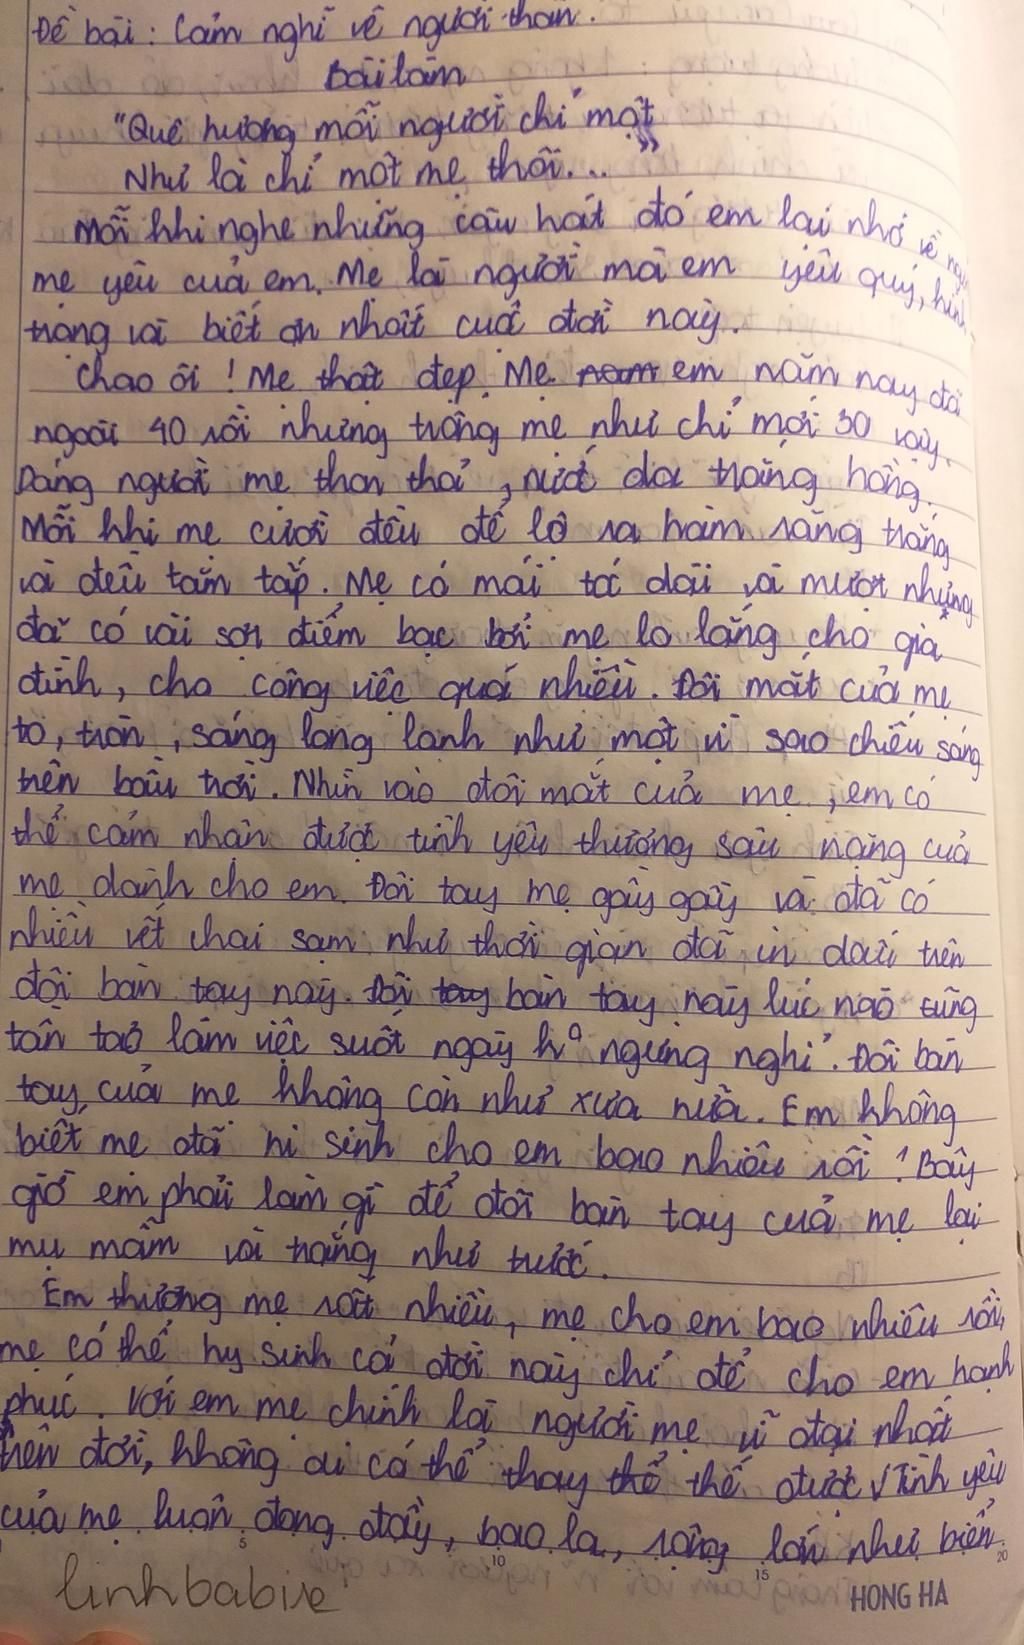 Đề bài: Cảm nghĩ về người thân.
Bài làm
"Quê hương mỗi người chỉ một
Như là chỉ một mẹ thôi..."
Mỗi khi nghe những câu hát đó em lại nhớ về
mẹ yêu của em. Mẹ là người mà em yêu quý, kính
trọng và biết ơn nhất cuộc đời này.
Chao ôi! Mẹ thật đẹp. Mẹ em năm nay đã
ngoài 40 rồi nhưng trông mẹ như chỉ mới 30 vậy.
Dáng người mẹ thon thả, nước da trắng hồng.
Mỗi khi mẹ cười đều để lộ ra hàm răng trắng
và đều tăm tắp. Mẹ có mái tóc dài và mượt nhưng
đã có vài sợi điểm bạc bởi mẹ lo lắng cho gia
đình, cho công việc quá nhiều. Đôi mắt của mẹ
to, tròn, sáng long lanh như một vì sao chiếu sáng
trên bầu trời. Nhìn vào đôi mắt của mẹ, em có
thể cảm nhận được tình yêu thương sâu nặng của
mẹ dành cho em. Đôi tay mẹ gầy gầy và đã có
nhiều vết chai sạm như thời gian đã in dấu trên
đôi bàn tay này. Đôi bàn tay này lúc nào cũng
tần tảo làm việc suốt ngày ko ngưng nghỉ. Đôi bàn
tay của mẹ không còn như xưa nữa. Em không
biết mẹ đã hi sinh cho em bao nhiêu rồi! Bây
giờ em phải làm gì để đôi bàn tay của mẹ lại
mụ mẫm và trắng như trước.
Em thương mẹ rất nhiều, mẹ cho em bao nhiêu rồi,
mẹ có thể hy sinh cả đời này chỉ để cho em hạnh
phúc. Với em mẹ chính là người mẹ vĩ đại nhất
trên đời, không ai có thể thay thế được. Tình yêu
của mẹ luôn đong đầy, bao la, rộng lớn như biển
5 10 15 20
linhbabie
HONG HA